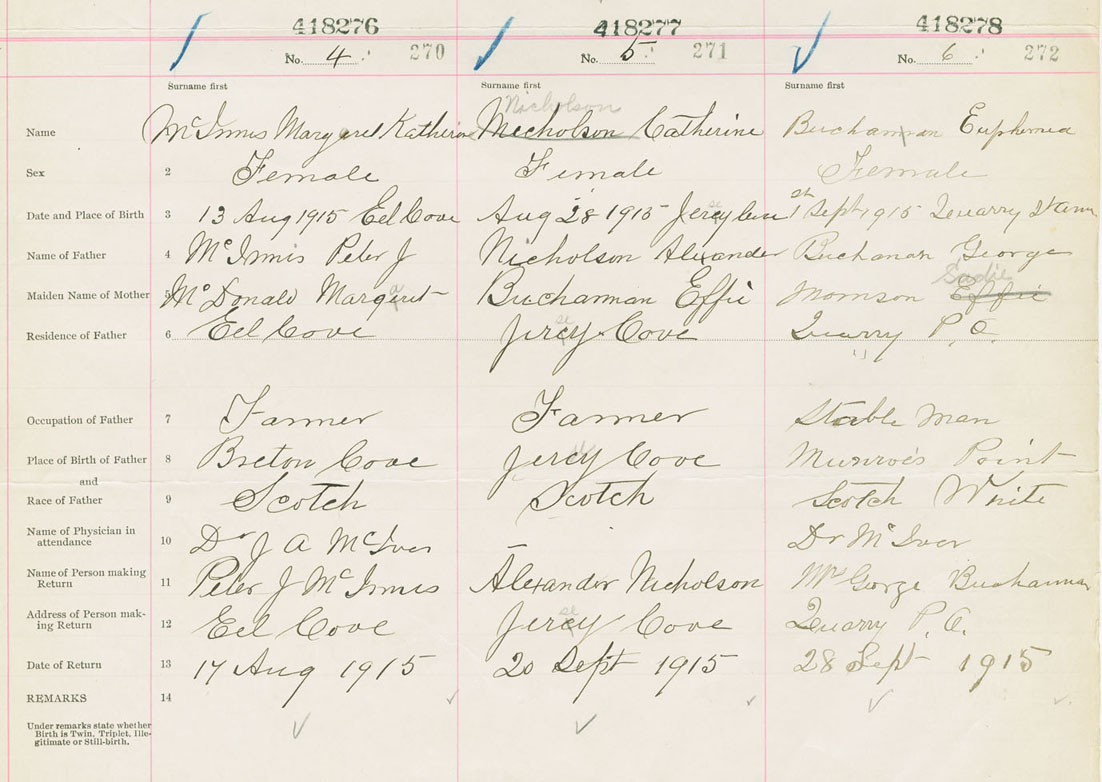 418276 418277 418278
No. 4 270 No. 5 271 No. 6 272
Surname first Surname first Surname first
Nicholson
Name McInnis Margaret Katherine Mecholson Catherine Buchannan Euphemia
Sex 2 Female Female Female
Date and Place of Birth 3 13 Aug 1915 Eel Cove Aug 28 1915 1st Sept 1915 Quarry
Name of Father 4 McInnis Peter J Nicholson Alexander Buchanan George
Sadie
Maiden Name of Mother 5 McDonald Margaret Buchannan Effie Morrison Effie
Residence of Father 6 Eel Cove Jercy Cove Quarry P.O.
Occupation of Father 7 Farmer Farmer Stable Man
Place of Birth of Father 8 Breton Cove Jercy Cove Munroe's Point
and
Race of Father 9 Scotch Scotch Scotch White
Name of Physician in
attendance 10 Dr J A McIver Dr McIver
Name of Person making
Return 11 Peter J McInnis Alexander Nicholson Mrs Gorge Buchannan
Address of Person mak-
ing Return 12 Eel Cove Jercy Cove Quarry P.O.
Date of Return 13 17 Aug 1915 20 Sept 1915 28 Sept 1915
REMARKS 14
Under remarks state whether
Birth is Twin, Triplet, Ille-
gitimate or Still-birth.